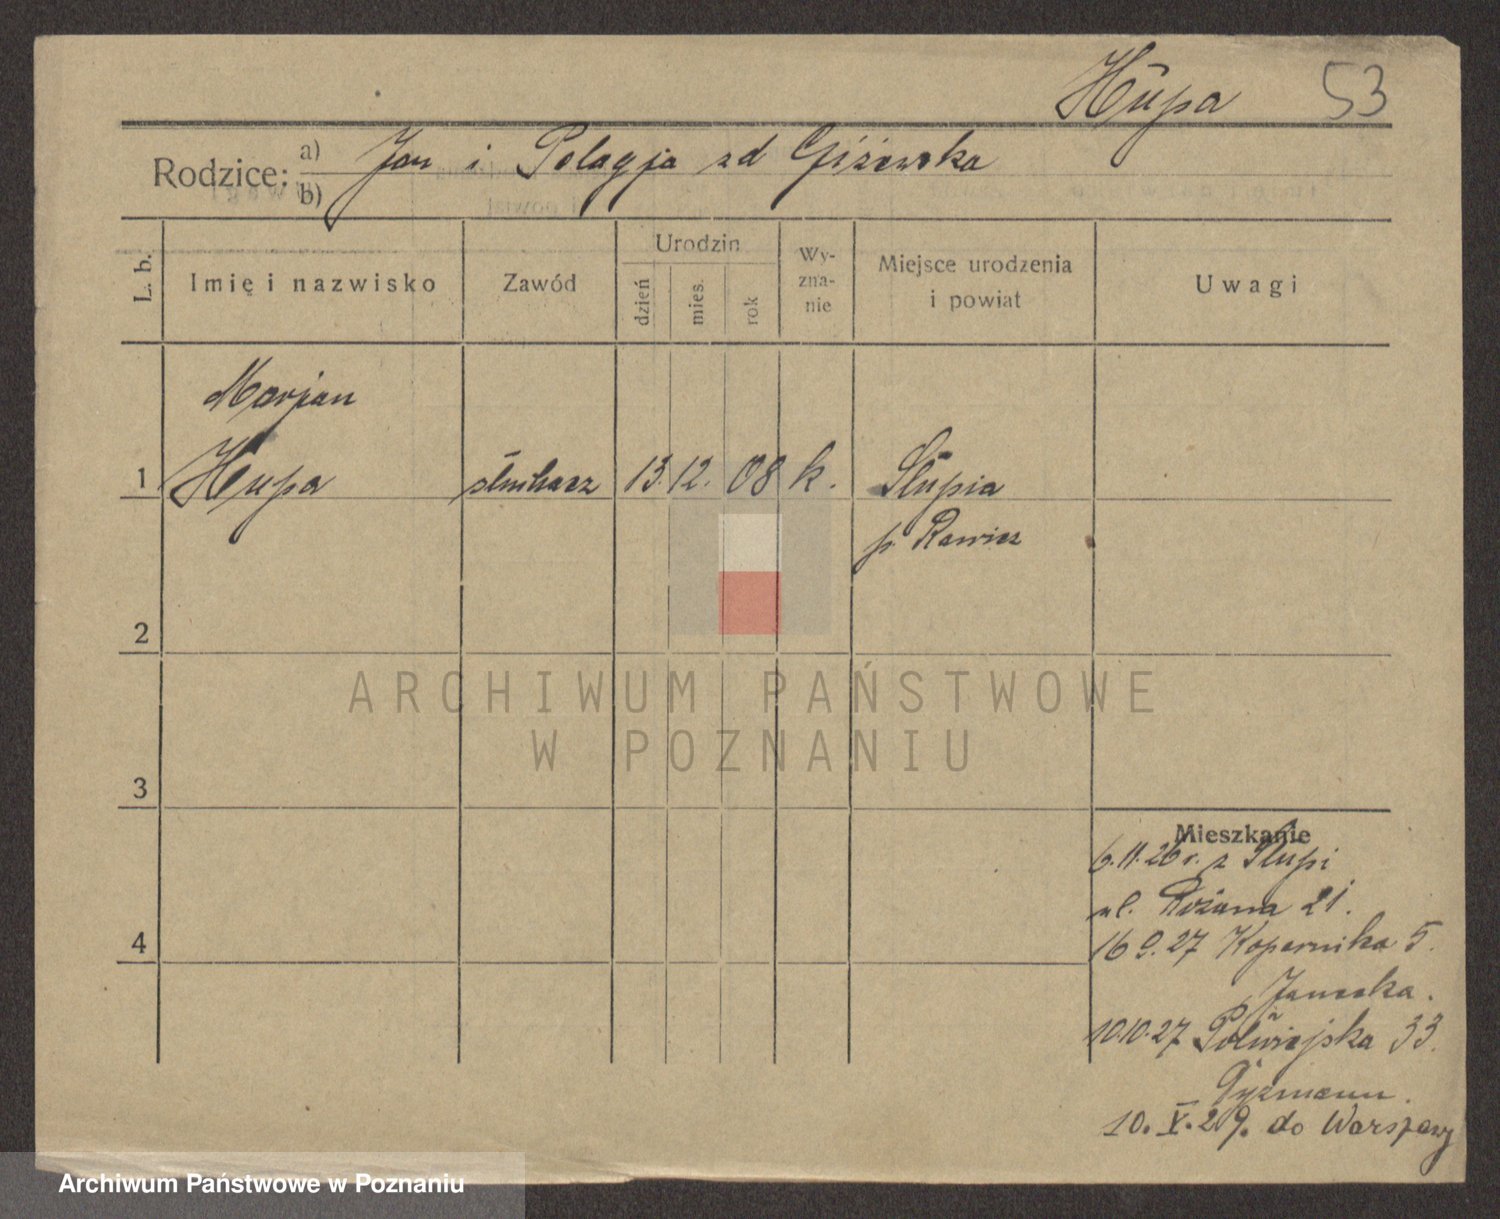 Hupa 53
Rodzice: a) Jan i Pelagja zd Giżewska
b)
L. b. Imię i nazwisko Zawód Urodzin dzień mies. rok Wyznanie Miejsce urodzenia i powiat Uwagi
Marjan
1 Hupa słuchacz 13. 12. 08 k. Słupia
p. Rawicz
2
ARCHIWUM PAŃSTWOWE
W POZNANIU
3
Mieszkanie
6.11.26 r. z Słupi
ul. Różana 21.
4
16 9.27 Kopernika 5.
10.10.27 Półwiejska 33.
10. V. 29. do Warszawy
Archiwum Państwowe w Poznaniu